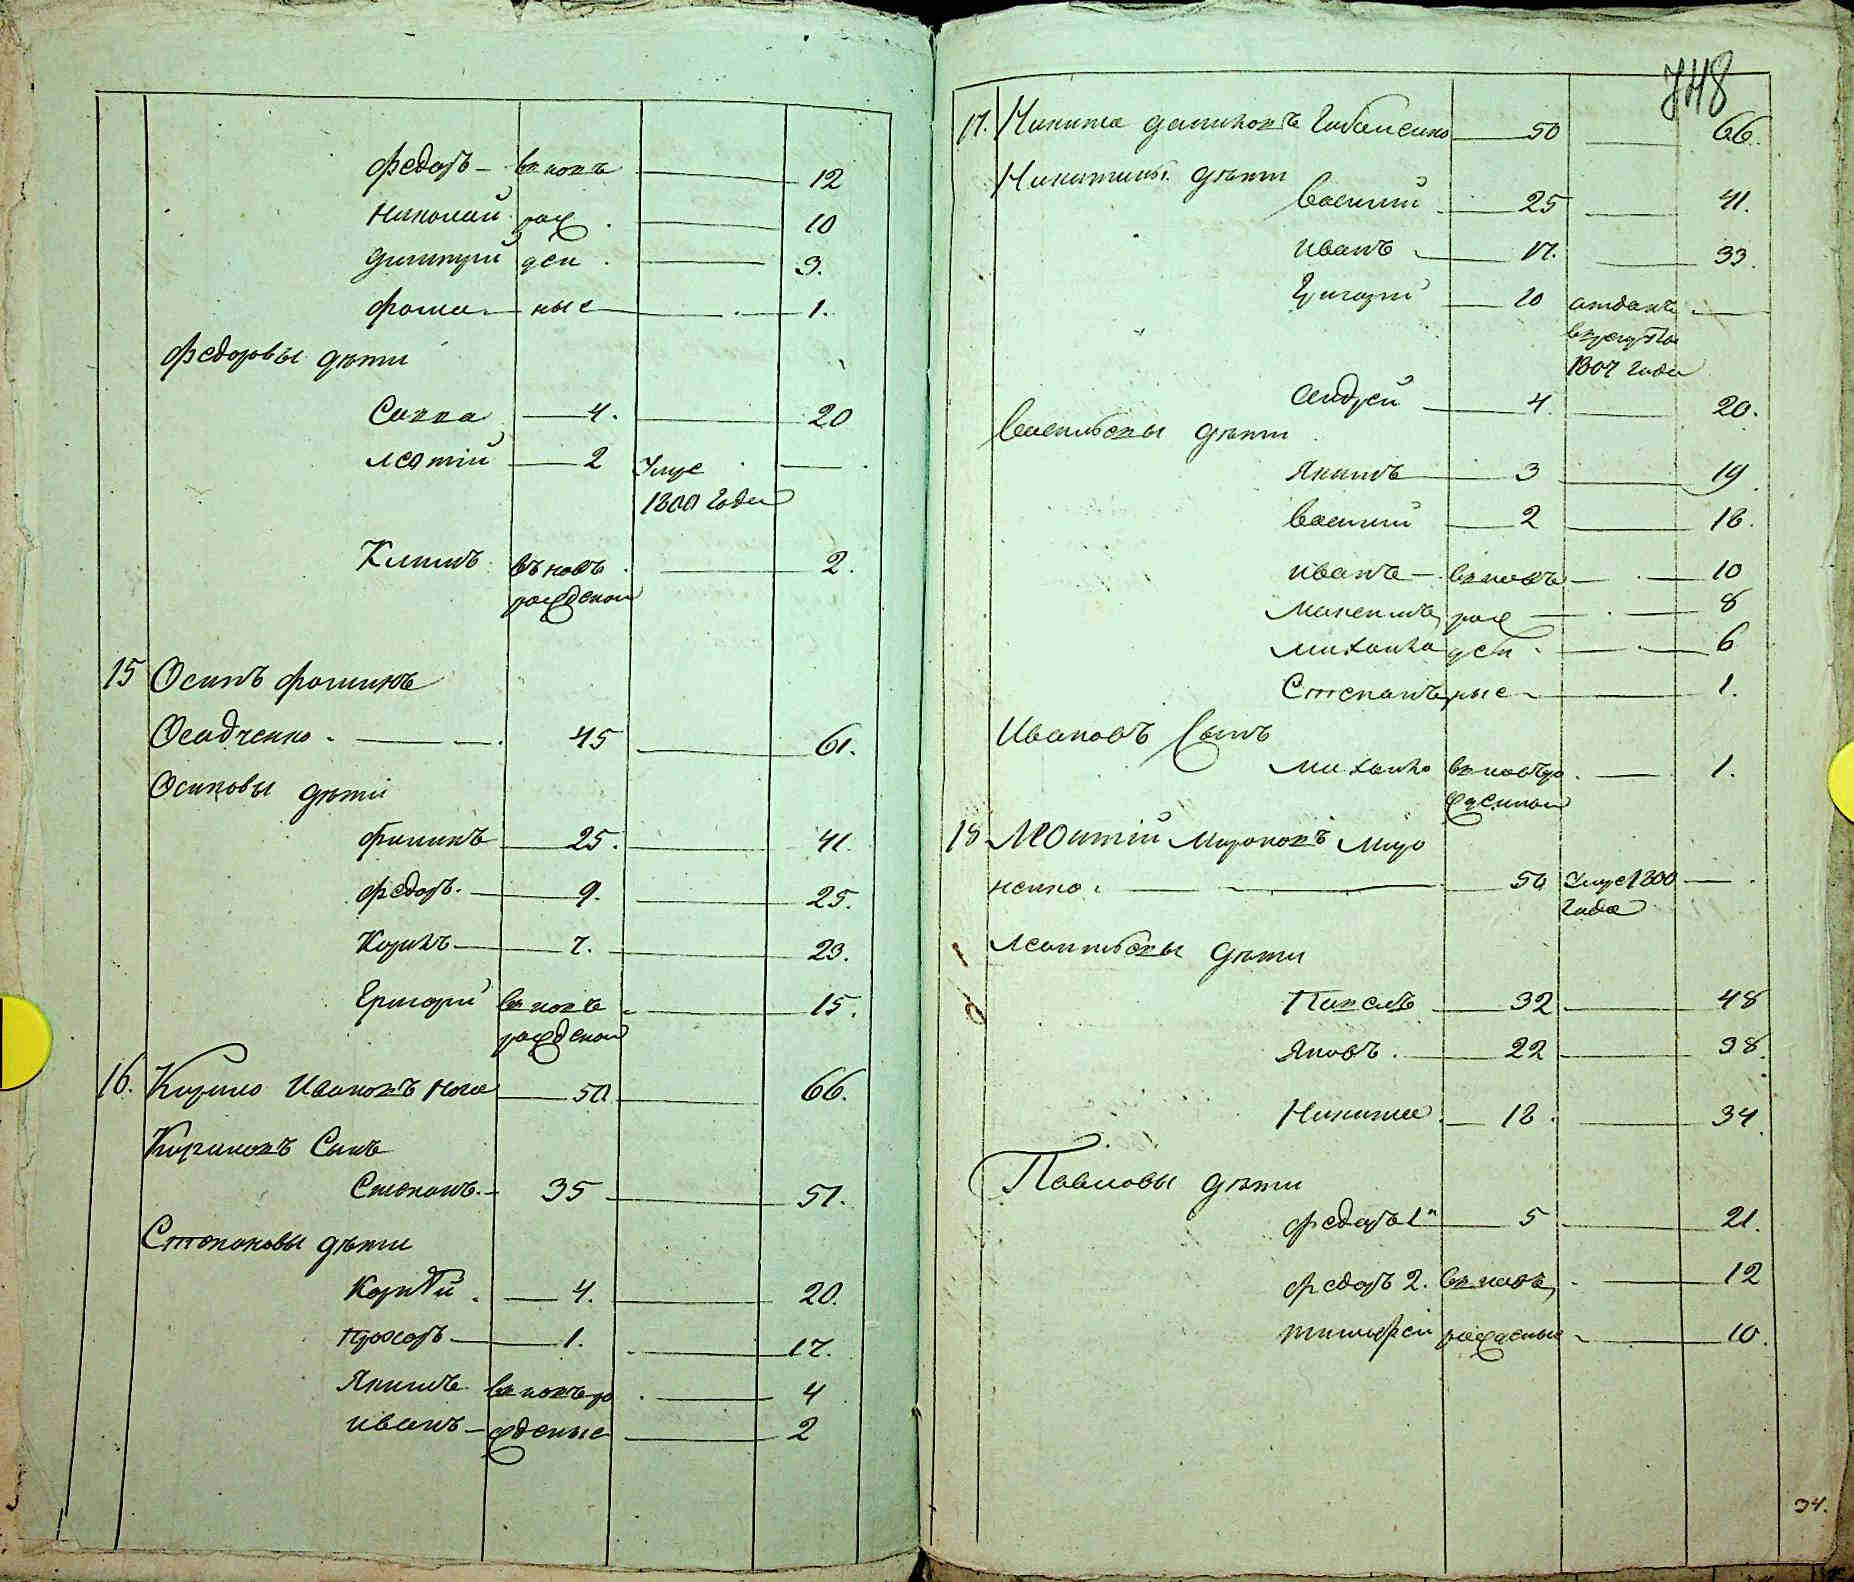 Федоръ вновь 12
Николай рож 10
Димитрій ден 3.
Фома ные 1.
Федоровы дѣти
Савва 4. 20
Леонтій 2 Умре
1800 Года
Климъ въновь 2.
рожденой
15 Осипъ Фоминъ
Осадченко 45 61.
Осиповы дѣти
Филипъ 25. 41.
Федоръ 9. 25.
Карпъ 7. 23.
Григорій вновь 15.
рожденой
16. Кирило Ивановъ Нога 50 66.
Кириловъ Сынъ
Степанъ 35 51.
Степановы дѣти
Карпѣй 4. 20.
Прохоръ 1. 17.
Якимъ вновь ро 4
Иванъ жденые 2
748
17. Никита Даниловъ 50 66.
Никитины дѣти
Василий 25 41.
Иванъ 17. 33.
Григорій 20 отданъ
врекруты
1807 Года
Андрей 4 20.
Васильевы дѣти
Якимъ 3 19.
Василий 2 18.
Иванъ вновь 10
Максимъ рож 8
Михайло ден 6
Степанъ ные 1.
Ивановъ Сынъ
Михайло вновь ро 1.
жденной
18 Леонтій Мироновъ Миро
ненко 50 Умре 1800
Года
Леонтьевы дѣти
Павелъ 32 48
Яковъ 22 38.
Никита 18. 34.
Павловы дѣти
Федоръ 1й 5 21.
Федоръ 2. вновь 12
Тимофей рожденые 10.
34.